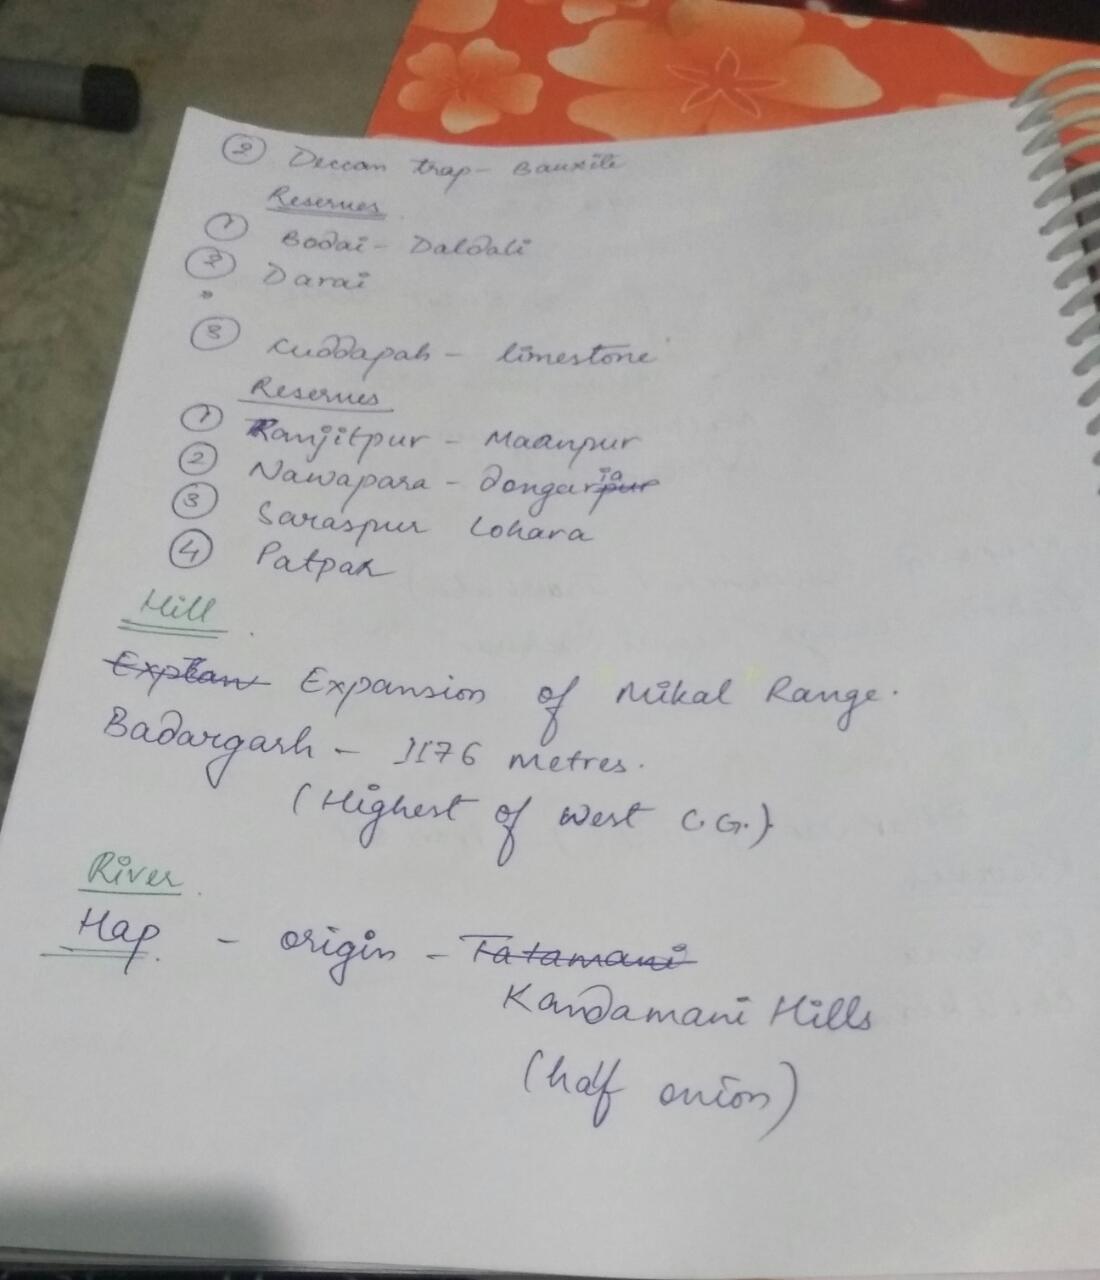 ② Deccan trap - Bauxite
Reserves
① Bodai - Daldali
② Darai
③ Kuddapah - limestone
Reserves
① Ranjitpur - Maanpur
② Nawapara - dongaria
③ Saraspur Lohara
④ Patpar
Hill
Explan Expansion of Mikal Range.
Badargarh - 1176 metres.
(Highest of west C.G.)
River
Hap - origin - Tatamani
Kandamani Hills
(half onion)